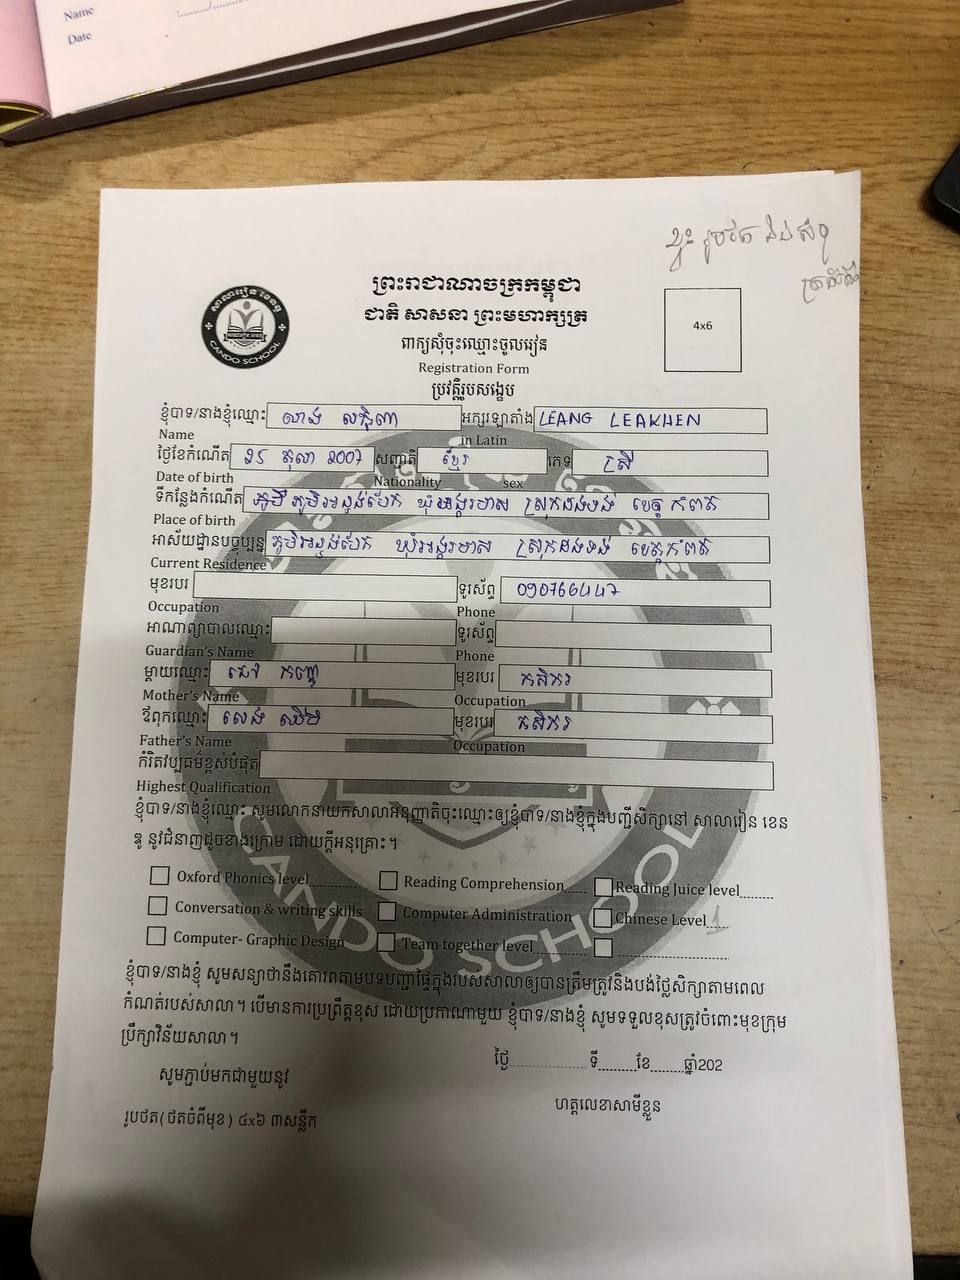 Name
Date
ខ្វះ រូបថត និង សំបុត្រ
ព្រះរាជាណាចក្រកម្ពុជា
ជាតិ សាសនា ព្រះមហាក្សត្រ
ពាក្យសុំចុះឈ្មោះចូលរៀន
Registration Form
ប្រវត្តិរូបសង្ខេប
4x6
សាលារៀន ខេនឌូ
CANDO SCHOOL
ខ្ញុំបាទ/នាងខ្ញុំឈ្មោះ លាង លក្ខិណា អក្សរឡាតាំង LEANG LEAKHEN
Name in Latin
ថ្ងៃខែកំណើត 25 តុលា 2007 សញ្ជាតិ ខ្មែរ ភេទ ស្រី
Date of birth Nationality sex
ទីកន្លែងកំណើត ភូមិ ភូមិអន្លង់បែក ឃុំអង្គរមាស ស្រុកដងទង់ ខេត្ត កំពត
Place of birth
អាស័យដ្ឋានបច្ចុប្បន្ន ភូមិអន្លង់បែក ឃុំអង្គរមាស ស្រុកដងទង់ ខេត្តកំពត
Current Residence
មុខរបរ ទូរស័ព្ទ 090766447
Occupation Phone
អាណាព្យាបាលឈ្មោះ ទូរស័ព្ទ
Guardian's Name Phone
ម្តាយឈ្មោះ មុខរបរ កសិករ
Mother's Name Occupation
ឪពុកឈ្មោះ លេង ឈឹម មុខរបរ កសិករ
Father's Name Occupation
កំរិតវប្បធម៌ខ្ពស់បំផុត
Highest Qualification
ខ្ញុំបាទ/នាងខ្ញុំឈ្មោះ សូមលោកនាយកសាលាអនុញ្ញាតិចុះឈ្មោះឲ្យខ្ញុំបាទ/នាងខ្ញុំក្នុងបញ្ជីសិក្សានៅ សាលារៀន ខេន
ឌូ នូវជំនាញដូចខាងក្រោម ដោយក្តីអនុគ្រោះ។
Oxford Phonics level.......... Reading Comprehension...... Reading Juice level........
Conversation & writing skills Computer Administration Chinese Level....1
Computer- Graphic Design Team together level..............
CANDO SCHOOL
ខ្ញុំបាទ/នាងខ្ញុំ សូមសន្យាថានឹងគោរពតាមបទបញ្ជាផ្ទៃក្នុងរបស់សាលាឲ្យបានត្រឹមត្រូវនិងបង់ថ្លៃសិក្សាតាមពេល
កំណត់របស់សាលា។ បើមានការប្រព្រឹត្តខុស ដោយប្រការណាមួយ ខ្ញុំបាទ/នាងខ្ញុំ សូមទទួលខុសត្រូវចំពោះមុខក្រុម
ប្រឹក្សាវិន័យសាលា។
ថ្ងៃ.................... ទី..........ខែ........ឆ្នាំ202
សូមភ្ជាប់មកជាមួយនូវ
ហត្តលេខាសាមីខ្លួន
រូបថត(ថតចំពីមុខ) ៤x៦ ៣សន្លឹក